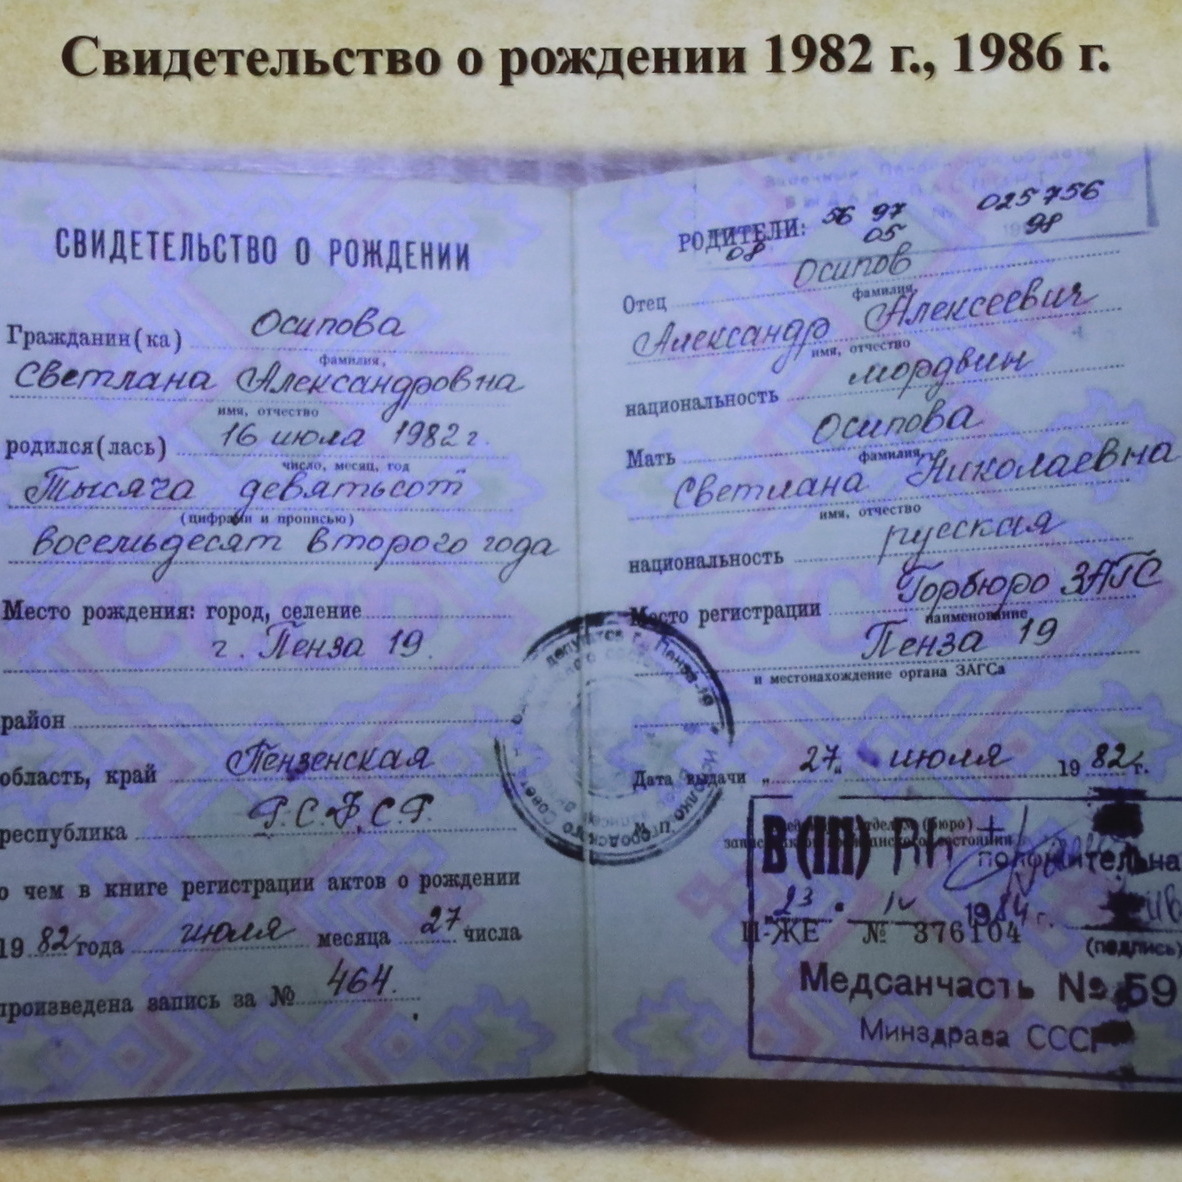 Свидетельство о рождении 1982 г., 1986 г.
СВИДЕТЕЛЬСТВО О РОЖДЕНИИ
Гражданин(ка) Осипова
фамилия,
Светлана Александровна
имя, отчество
родился(лась) 16 июля 1982 г.
число, месяц, год
Тысяча девятьсот
(цифрами и прописью)
восемьдесят второго года
Место рождения: город, селение
г. Пенза 19.
район
область, край Пензенская
республика Р.С.Ф.С.Р.
о чем в книге регистрации актов о рождении
19 82 года июля месяца 27 числа
произведена запись за № 464.
РОДИТЕЛИ: 56 97 025756
08 05 98
Осипов
Отец
фамилия,
Александр Алексеевич
имя, отчество
национальность мордвин
Мать Осипова
фамилия,
Светлана Николаевна
имя, отчество
национальность русская
Место регистрации Горбюро ЗАГС
наименование
Пенза 19
и местонахождение органа ЗАГСа
Дата выдачи „ 27 " июля 19 82 г.
В(III) RH + положительная
23 IV 1984 г.
II-ЖЕ № 376104
(подпись)
Медсанчасть № 59
Минздрава СССР